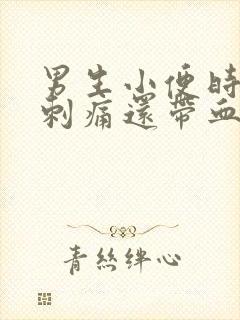 男生小便時
刺痛還帶血
青絲絆心